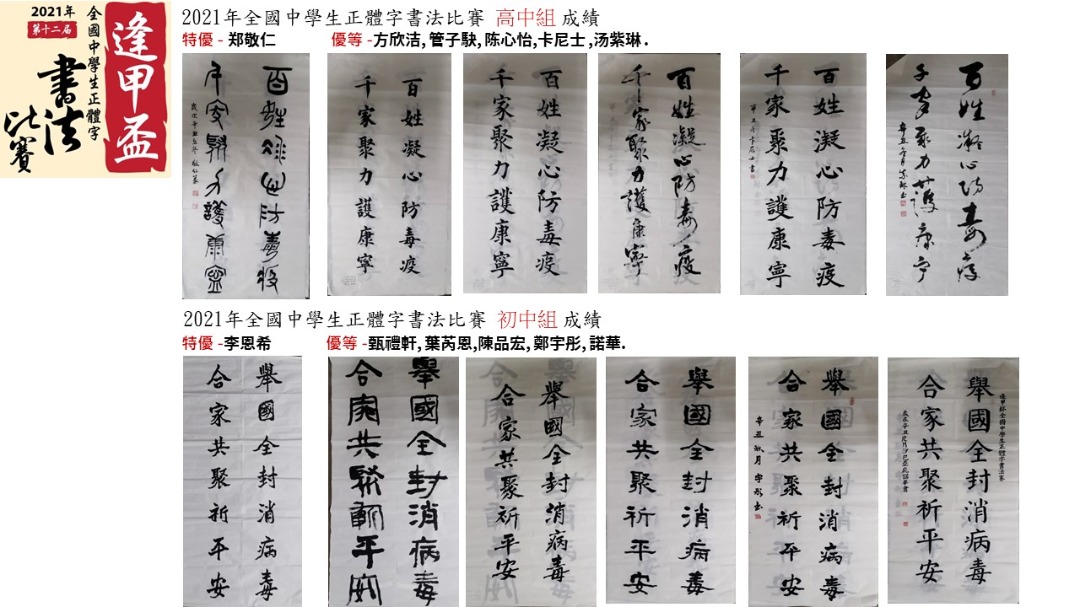 2021年
第十二屆
全國中學生正體字
書法
比賽
逢甲盃
2021年全國中學生正體字書法比賽 高中組 成績
特優 - 郑敬仁 優等 -方欣洁, 管子駃, 陈心怡,卡尼士 ,汤紫琳 .
百姓凝心防毒疫
千家聚力護康寧
百姓凝心防毒疫
千家聚力護康寧
百姓凝心防毒疫
千家聚力護康寧
百姓凝心防毒疫
千家聚力護康寧
百姓凝心防毒疫
千家聚力護康寧
百姓凝心防毒疫
千家聚力護康寧
2021年全國中學生正體字書法比賽 初中組 成績
特優 -李恩希 優等 -甄禮軒, 葉芮恩,陳品宏, 鄭宇彤, 諾華.
舉國全封消病毒
合家共聚祈平安
舉國全封消病毒
合家共聚祈平安
舉國全封消病毒
合家共聚祈平安
舉國全封消病毒
合家共聚祈平安
舉國全封消病毒
合家共聚祈平安
辛丑秋月宇彤書
逢甲杯全國中學生正體字書法賽
舉國全封消病毒
合家共聚祈平安